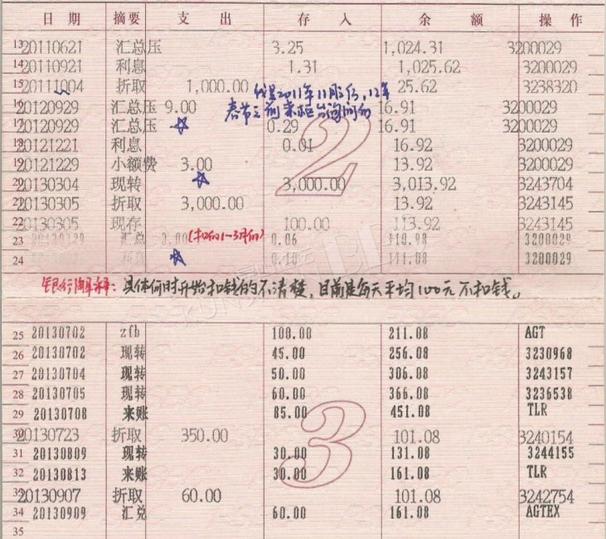 日期 摘要 支出 存入 余额 操作
13 20110621 汇总压 3.25 1,024.31 3200029
14 20110921 利息 1.31 1,025.62 3200029
15 20111004 折取 1,000.00 25.62 3238320
16 20120929 汇总压 9.00 16.91 3200029
17 20120929 汇总压 0.29 16.91 3200029
18 20121221 利息 0.01 16.92 3200029
19 20121229 小额费 3.00 13.92 3200029
20 20130304 现转 3,000.00 3,013.92 3243704
21 20130305 折取 3,000.00 13.92 3243145
22 20130305 现存 100.00 113.92 3243145
23 汇总 3.00 (扣的1-3月份) 0.06 110.98 3200029
24 0.10 111.08 3200029
2
银行解释: 具体何时开始扣钱的不清楚,目前是每天平均100元不扣钱。
25 20130702 zfb 100.00 211.08 AGT
26 20130702 现转 45.00 256.08 3230968
27 20130704 现转 50.00 306.08 3243157
28 20130705 现转 60.00 366.08 3236538
29 20130708 来账 85.00 451.08 TLR
30 20130723 折取 350.00 101.08 3240154
31 20130809 现转 30.00 131.08 3244155
32 20130813 来账 30.00 161.08 TLR
33 20130907 折取 60.00 101.08 3242754
34 20130909 汇兑 60.00 161.08 AGTEX
35
3